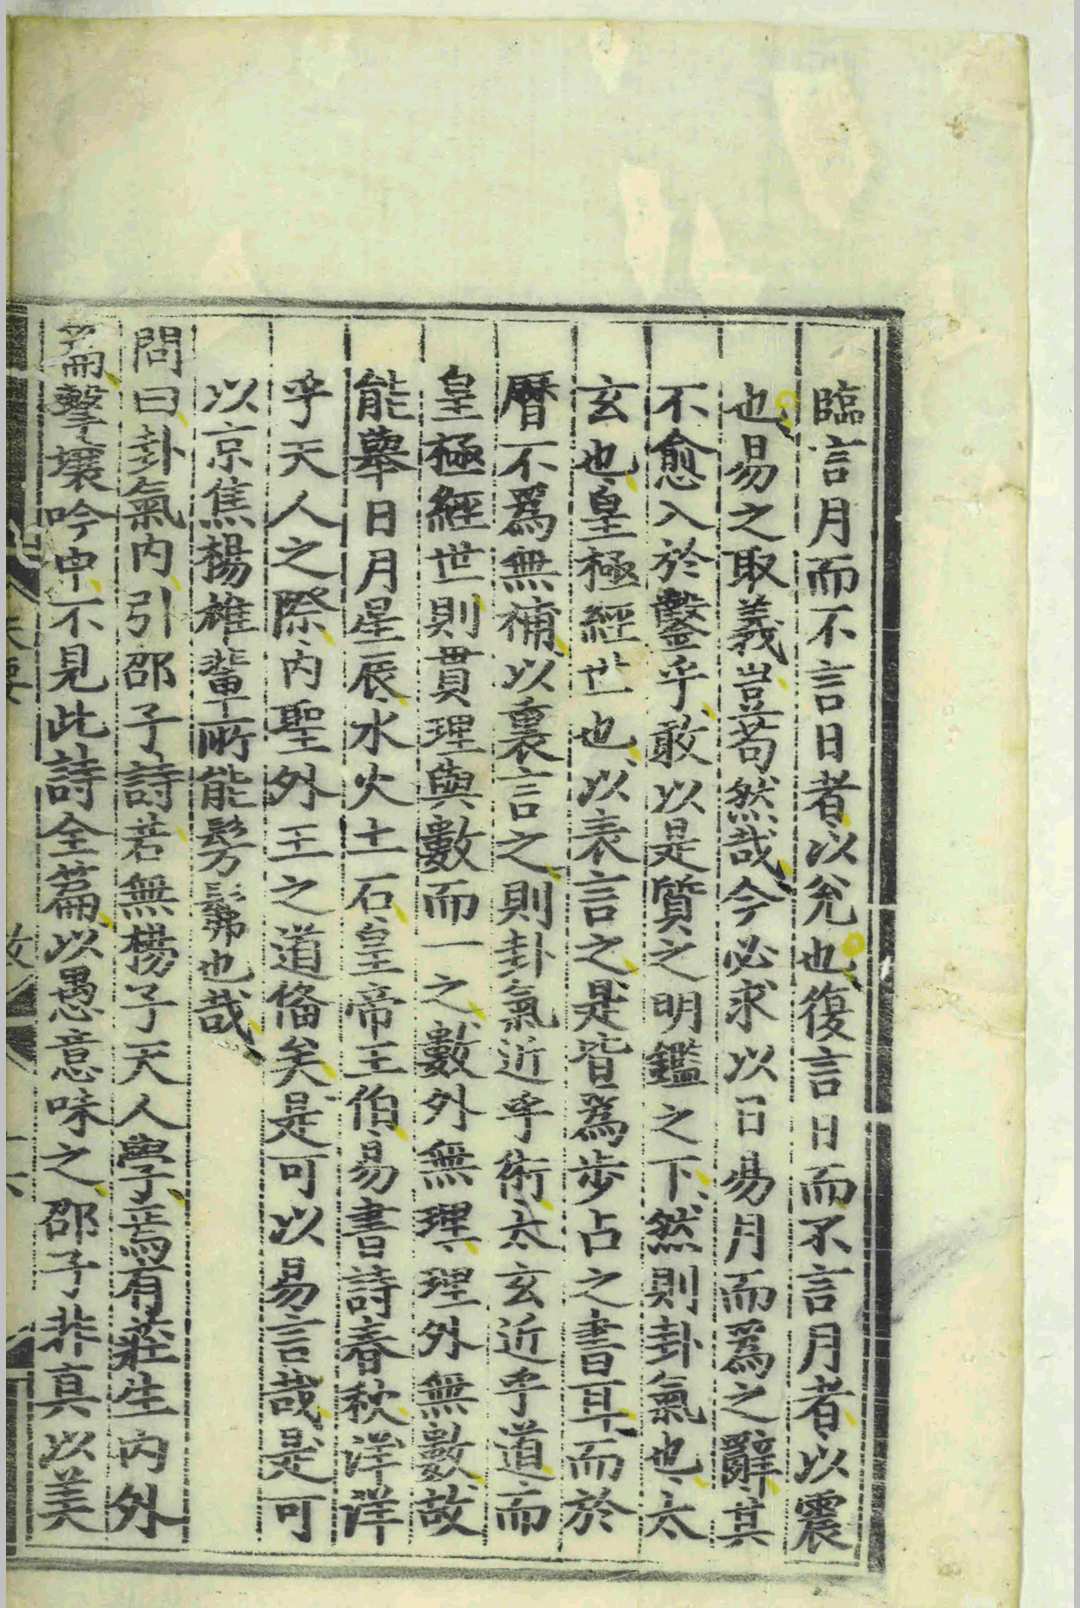 臨言月而不言日者以兊也復言日而不言月者以震
也易之取義豈苟然哉今必求以日易月而爲之辭其
不愈入於鑿乎敢以是質之明鑑之下然則卦氣也太
玄也皇極經世也以表言之是皆爲步占之書耳而於
曆不爲無補以裏言之則卦氣近乎術太玄近乎道而
皇極經世則貫理與數而一之數外無理理外無數故
能舉日月星辰水火土石皇帝王伯易書詩春秋洋洋
乎天人之際內聖外王之道俻矣是可以易言哉是可
以京焦楊雄輩所能髣髴也哉
問曰卦氣内引邵子詩若無楊子天人學焉有莊生内外
篇擊壤吟中不見此詩全篇以愚意味之邵子非真以美